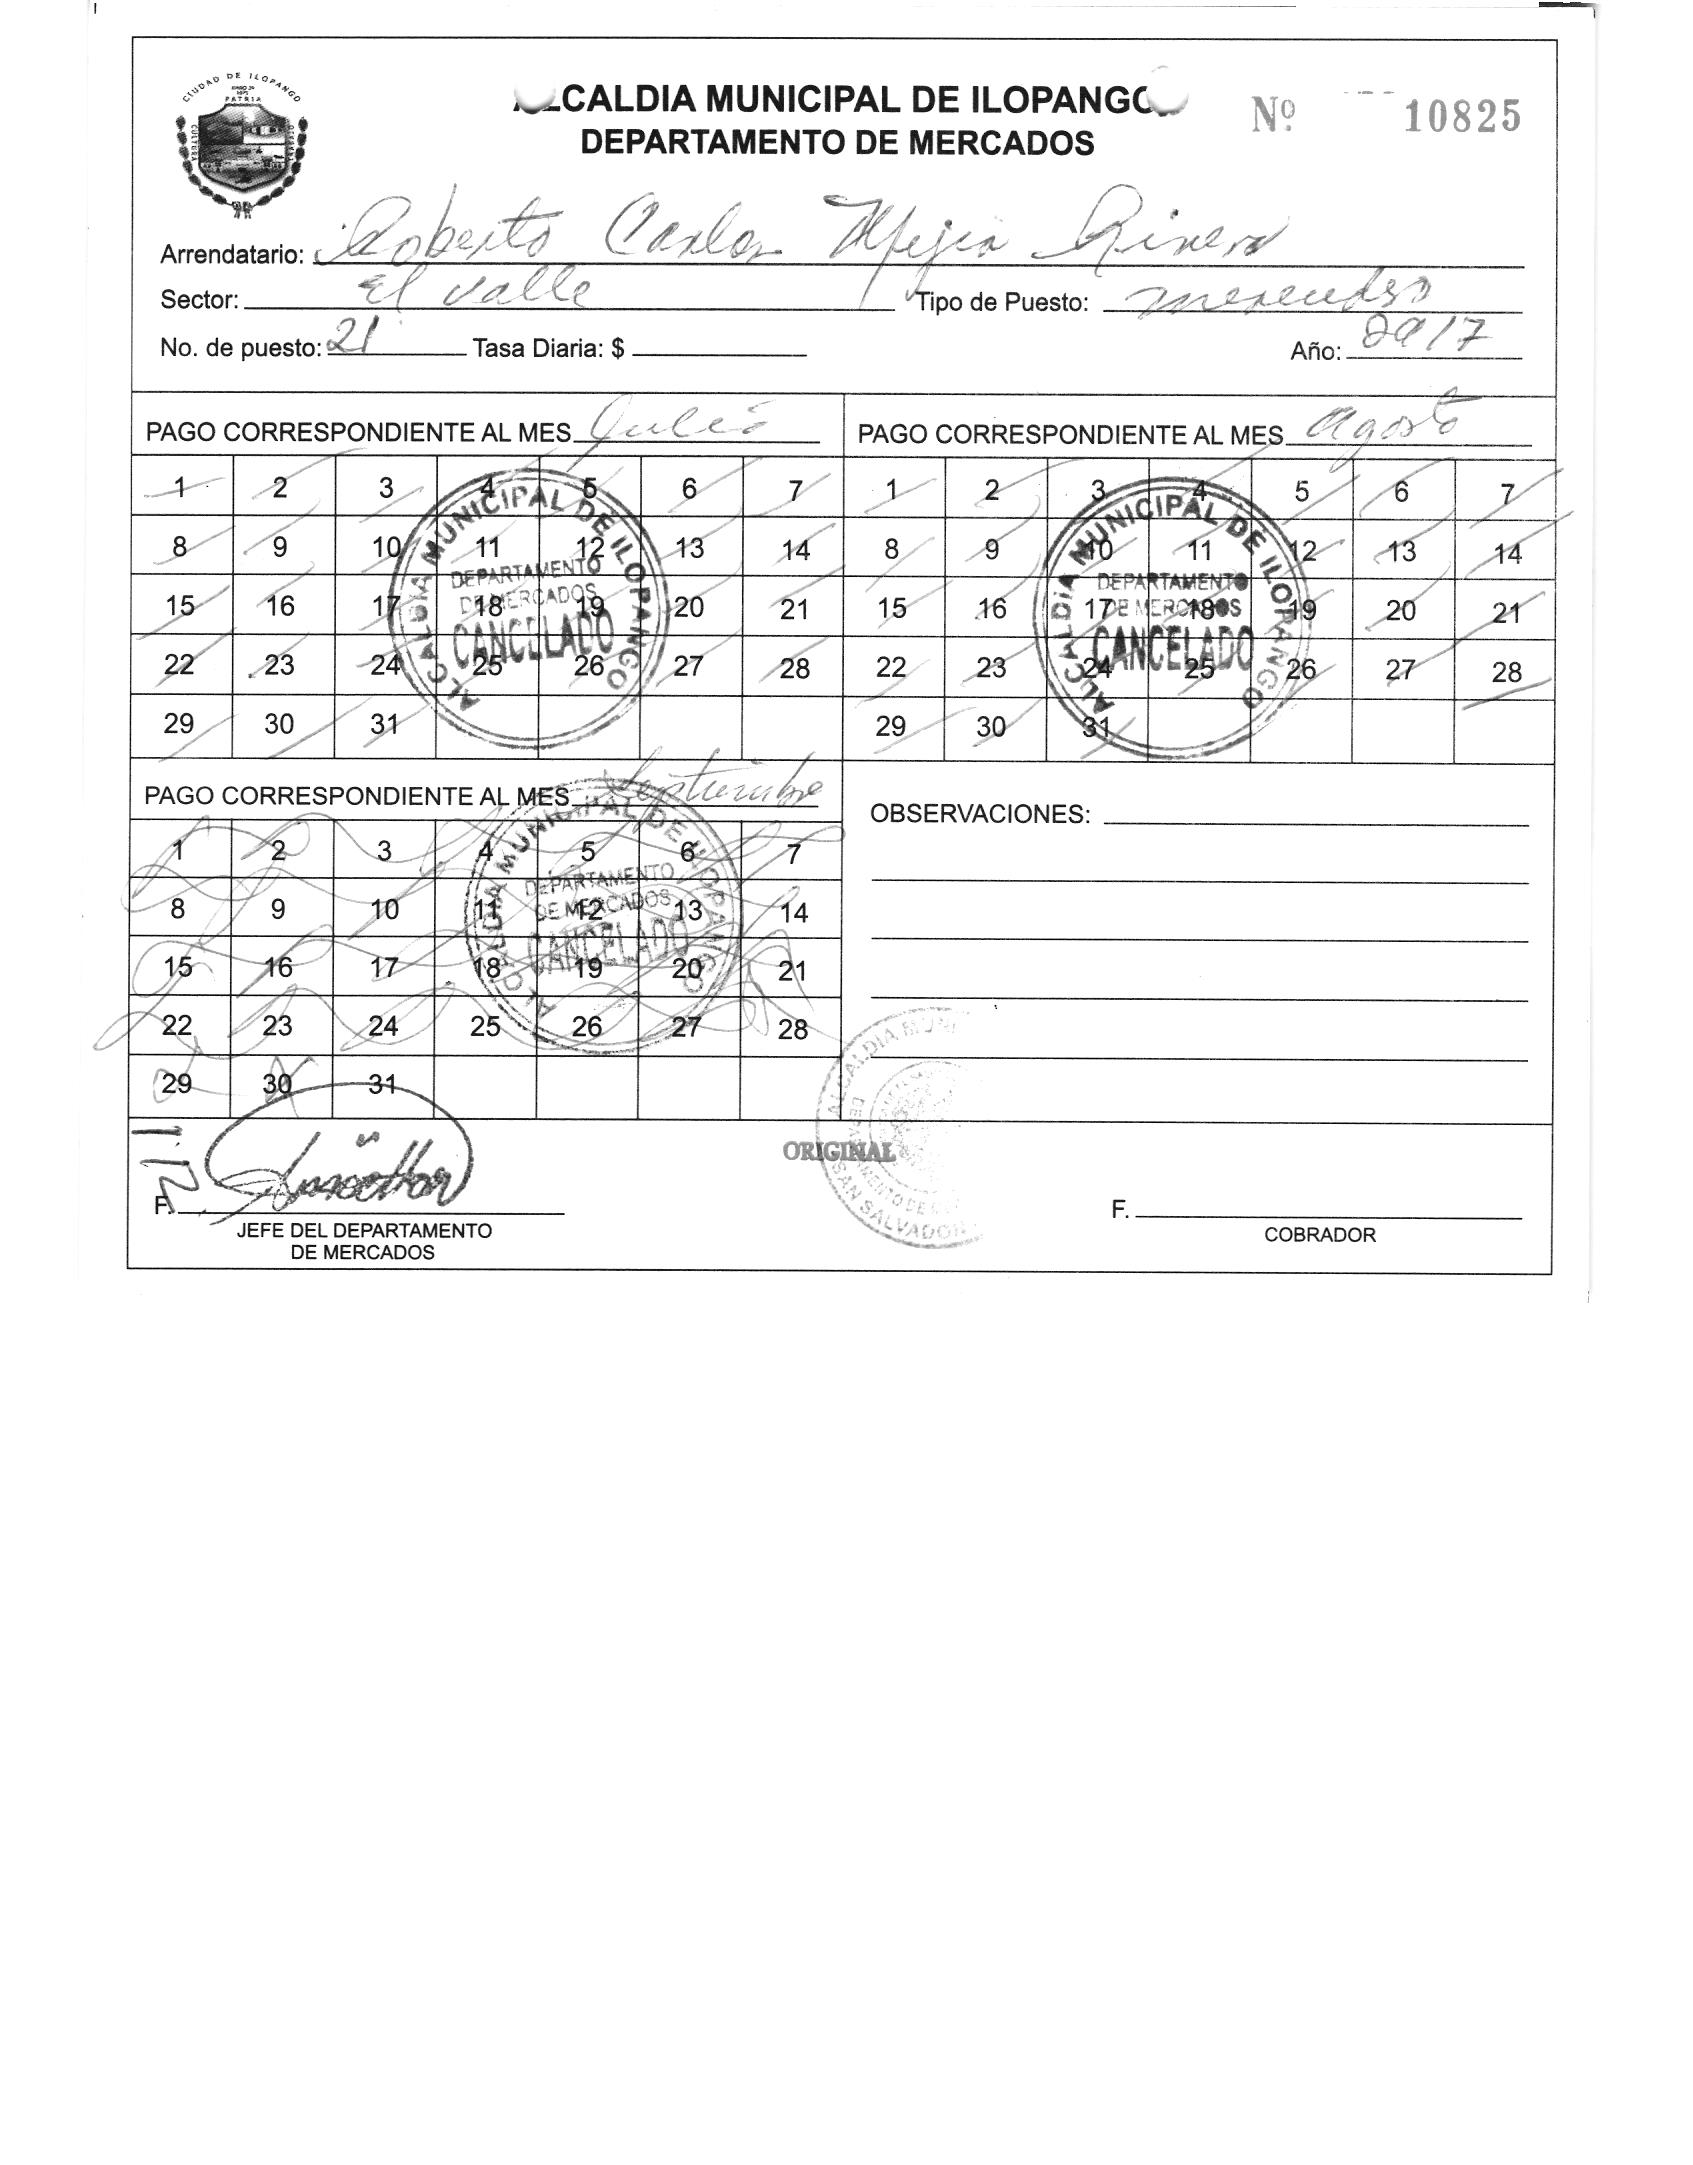 CIUDAD DE ILOPANGO
PATRIA
CULTURA
ALCALDIA MUNICIPAL DE ILOPANGO
DEPARTAMENTO DE MERCADOS
Nº 10825
Arrendatario: Roberto Carlos Mejia Rivera
Sector: El Valle Tipo de Puesto:
No. de puesto: 21 Tasa Diaria: $ Año: 2017
PAGO CORRESPONDIENTE AL MES Julio
1 2 3 4 5 6 7
8 9 10 11 12 13 14
15 16 17 18 19 20 21
22 23 24 25 26 27 28
29 30 31
ALCALDIA MUNICIPAL DE ILOPANGO
DEPARTAMENTO
DE MERCADOS
CANCELADO
PAGO CORRESPONDIENTE AL MES Agosto
1 2 3 4 5 6 7
8 9 10 11 12 13 14
15 16 17 18 19 20 21
22 23 24 25 26 27 28
29 30 31
ALCALDIA MUNICIPAL DE ILOPANGO
DEPARTAMENTO
DE MERCADOS
CANCELADO
PAGO CORRESPONDIENTE AL MES Septiembre
1 2 3 4 5 6 7
8 9 10 11 12 13 14
15 16 17 18 19 20 21
22 23 24 25 26 27 28
29 30 31
ALCALDIA MUNICIPAL DE ILOPANGO
DEPARTAMENTO
DE MERCADOS
CANCELADO
OBSERVACIONES:
ORIGINAL
ALCALDIA MUNI
SAN SALVADOR
F.
JEFE DEL DEPARTAMENTO
DE MERCADOS
F.
COBRADOR